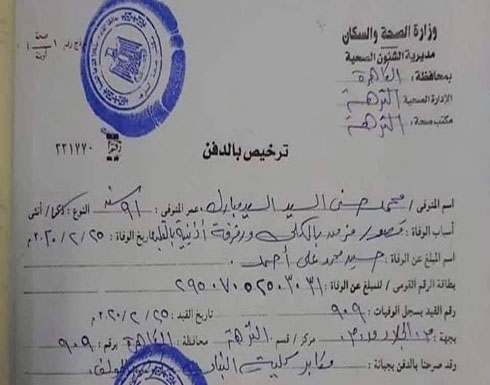 وزارة الصحة والسكان
مديرية الشئون الصحية
بمحافظة: القاهرة
الإدارة الصحية النزهة
مكتب صحة: النزهة
٢٢١٧٧٠
ترخيص بالدفن
اسم المتوفى / محمد حسنى السيد السيد مبارك عمر المتوفى / ٩١ سنة النوع: ذكر / أنثى
أسباب الوفاة: قصور مزمن بالكلى ورفرفة أذينية بالقلب تاريخ الوفاة: ٢٥ / ٢ / ٢٠٢٠ م
اسم المبلغ عن الوفاة: حسين محمد على أحمد
بطاقة الرقم القومى / للمبلغ عن الوفاة:
رقم القيد بسجل الوفيات: ٩٠٩ تاريخ القيد ٢٥ / ٢ / ٢٠٢٠ م
بجهة: م. الجلاء مركز / قسم النزهة محافظة: القاهرة برقم: ٩٠٩
قد صرحنا بالدفن بجبانة: مقابر